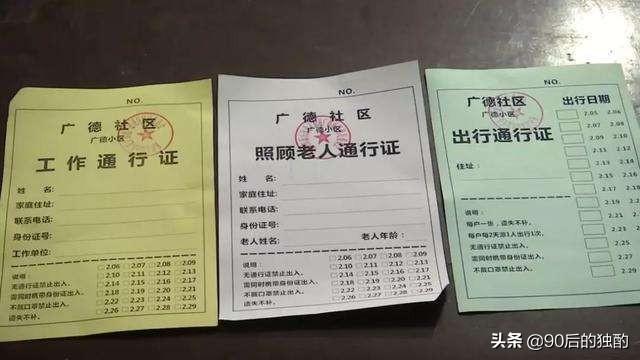 NO.
广德社区
广德小区
工作通行证
姓 名:
家庭住址:
联系电话:
身份证号:
工作单位:
说明:
无通行证禁止出入。
需同时携带身份证出入。
不戴口罩禁止出入。
遗失不补。
2.06 2.07 2.08 2.09
2.10 2.11 2.12 2.13
2.14 2.15 2.16 2.17
2.18 2.19 2.20 2.21
2.22 2.23 2.24 2.25
2.26 2.27 2.28 2.29
NO.
广德社区
广德小区
照顾老人通行证
姓 名:
家庭住址:
联系电话:
身份证号:
老人姓名: 老人年龄:
说明:
无通行证禁止出入。
需同时携带身份证出入。
不戴口罩禁止出入。
遗失不补。
2.06 2.07 2.08 2.09
2.10 2.11 2.12 2.13
2.14 2.15 2.16 2.17
2.18 2.19 2.20 2.21
2.22 2.23 2.24 2.25
2.26 2.27 2.28 2.29
NO.
广德社区
广德小区
出行通行证
住址:
说明:
每户一张,遗失不补。
每户每2天派1人出行1次。
无通行证禁止出入。
需同时携带身份证出入。
不戴口罩禁止出入。
出行日期
2.05 2.06
2.07 2.08
2.09 2.10
2.11 2.12
2.13 2.14
2.15 2.16
2.17 2.18
2.19 2.20
2.21 2.22
2.23 2.24
2.25 2.26
2.27 2.28
2.29
头条 @90后的独酌